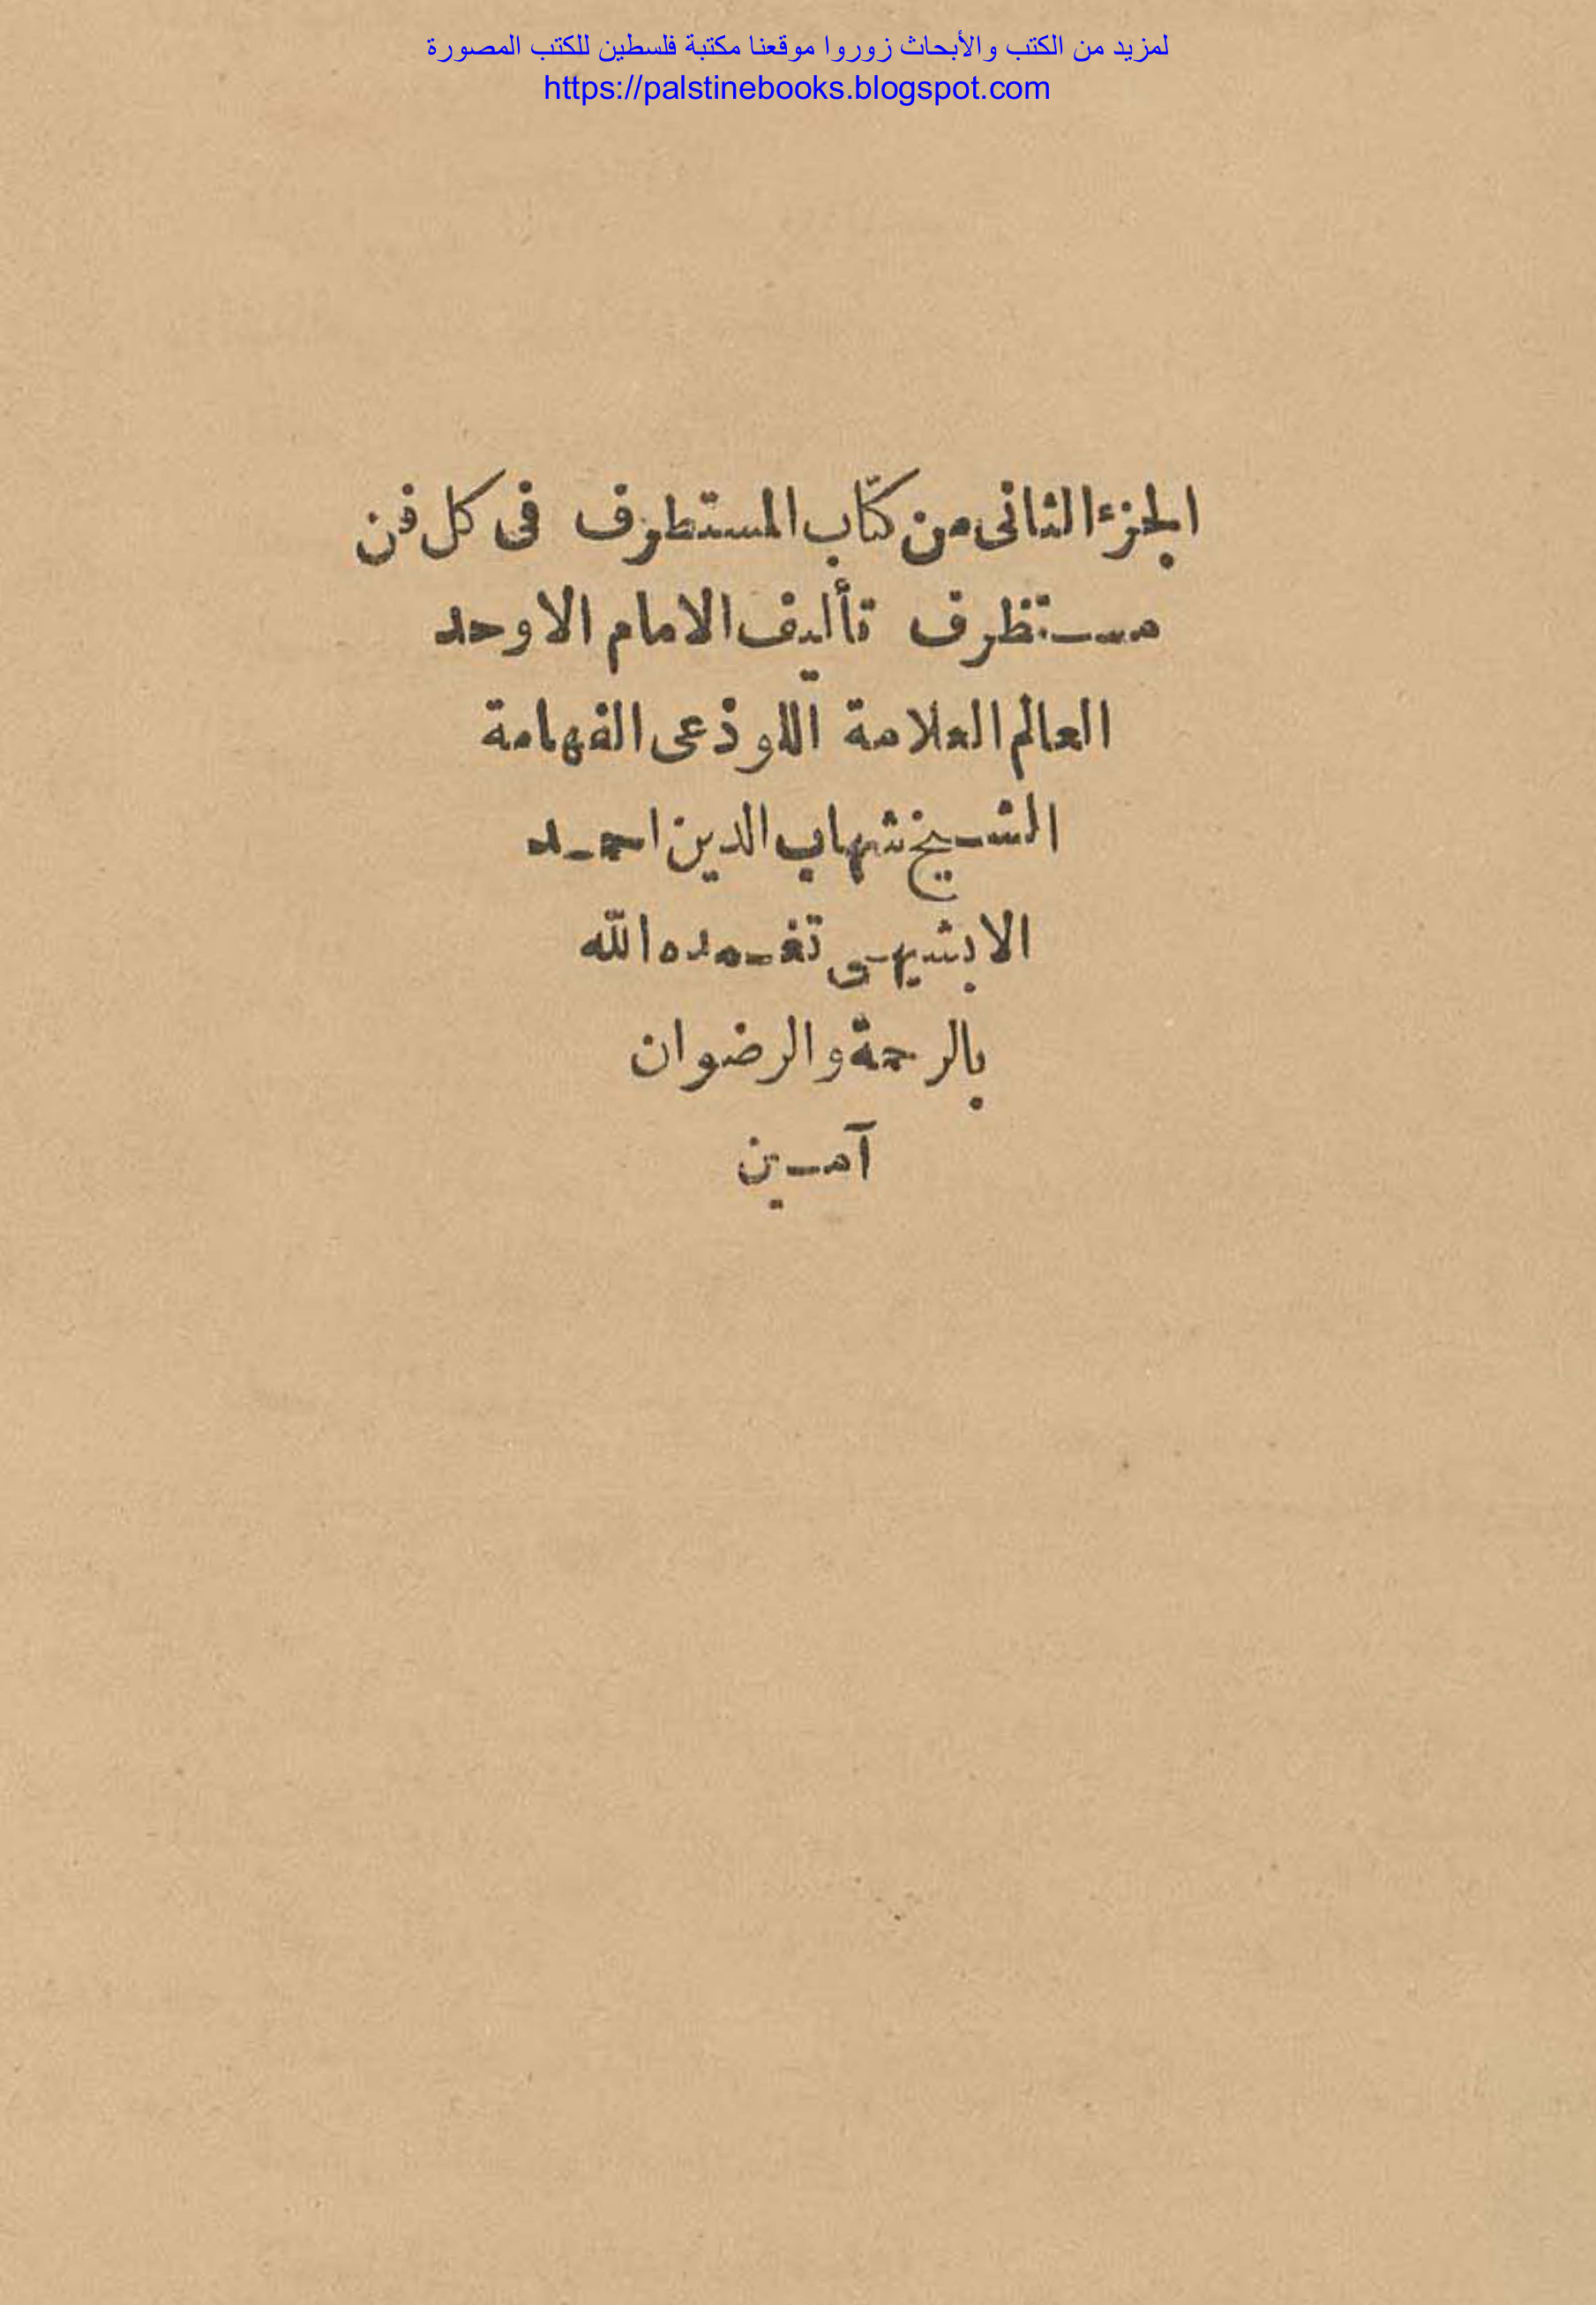 لمزيد من الكتب والأبحاث زوروا موقعنا مكتبة فلسطين للكتب المصورة
https://palstinebooks.blogspot.com
الجزء الثانى من كتاب المستطرف فى كل فن
مستظرف تأليف الامام الاوحد
العالم العلامة اللوذعى الفهامة
الشيخ شهاب الدين احمد
الابشيهى تغمده الله
بالرحمة والرضوان
آمين